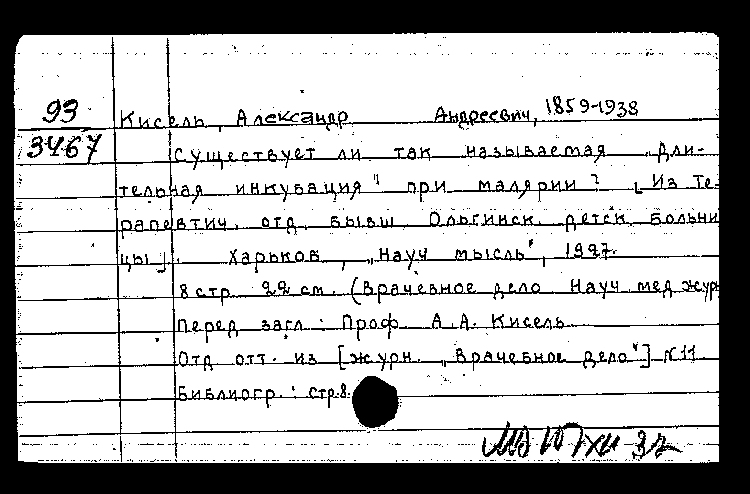 93
3467
Кисель, Александр Андреевич, 1859-1938
Существует ли так называемая „Дли-
тельная инкубация" при малярии? [Из те-
рапевтич. отд. бывш. Ольгинск. детск. больни
цы]. Харьков, „Науч мысль", 1927.
8 стр. 22 см. (Врачебное дело Науч мед журн
Перед загл.: Проф. А. А. Кисель
Отд отт. из [журн. „Врачебное дело"] N 11
Библиогр.: стр. 8.